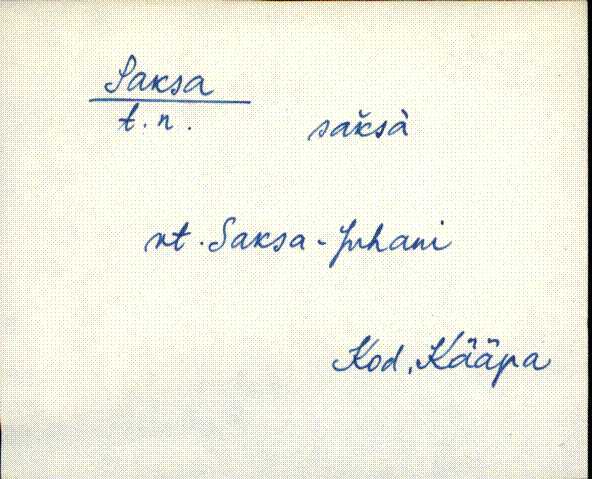 Saksa
t. n. sak̆sà
vt. Saksa-Juhani
Kod, Kääpa